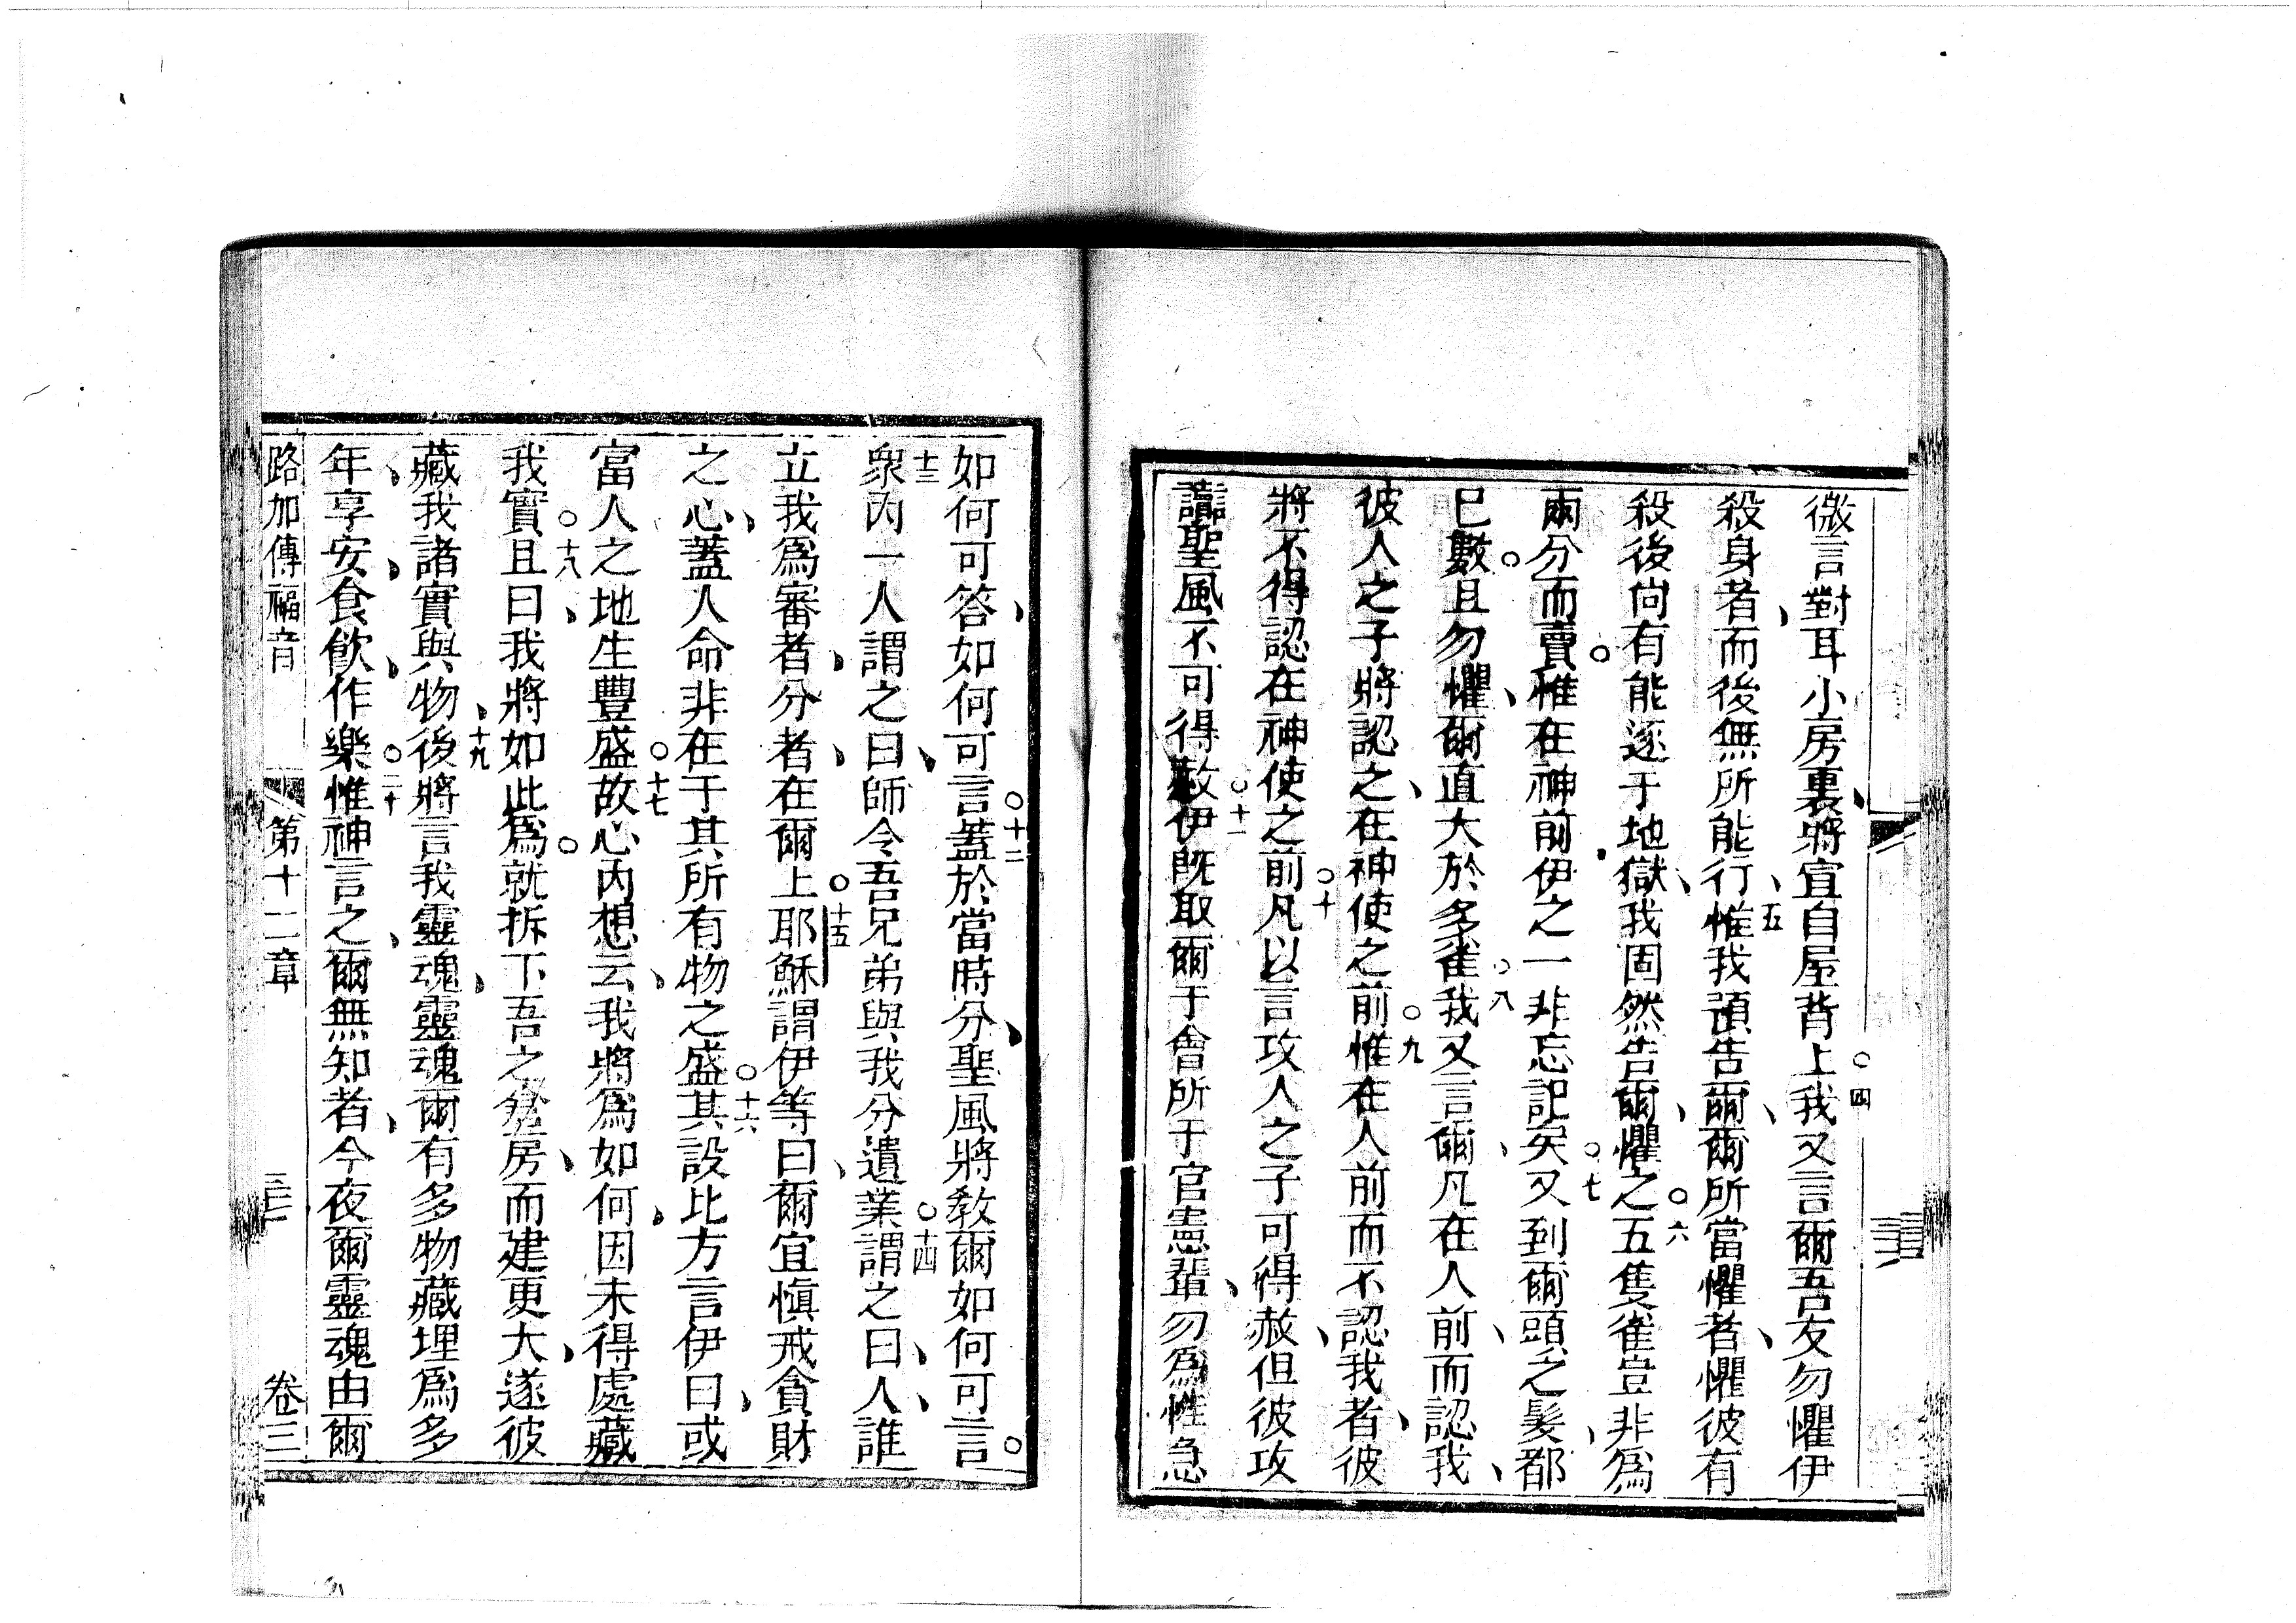 微言對耳小房裏將宣自屋背上○四我又言爾吾友勿懼伊
殺身者而後無所能行五惟我預告爾爾所當懼者懼彼有
殺後尙有能逐于地獄我固然告爾懼之○六五隻雀豈非爲
兩分而賣惟在神前伊之一非忘記矣○七又到爾頭之髮都
已數且勿懼爾直大於多雀○八我又言爾凡在人前而認我
彼人之子將認之在神使之前○九惟在人前而不認我者彼
將不得認在神使之前○十凡以言攻人之子可得赦但彼攻
讟聖風不可得赦○十一伊既取爾于會所于官憲輩勿爲性急
如何可答如何可言○十二蓋於當時分聖風將教爾如何可言
十三衆內一人謂之曰師令吾兄弟與我分遺業○十四謂之曰人誰
立我爲審者分者在爾上○十五耶穌謂伊等曰爾宜愼戒貪財
之心蓋人命非在于其所有物之盛○十六其設比方言伊曰或
富人之地生豐盛故○十七心內想云我將爲如何因未得處藏
我實○十八且曰我將如此爲就拆下吾之倉房而建更大遂彼
藏我諸實與物十九後將言我靈魂靈魂爾有多物藏埋爲多
年享安食飮作樂○二十惟神言之爾無知者今夜爾靈魂由爾
路加傳福音 第十二章 卷三